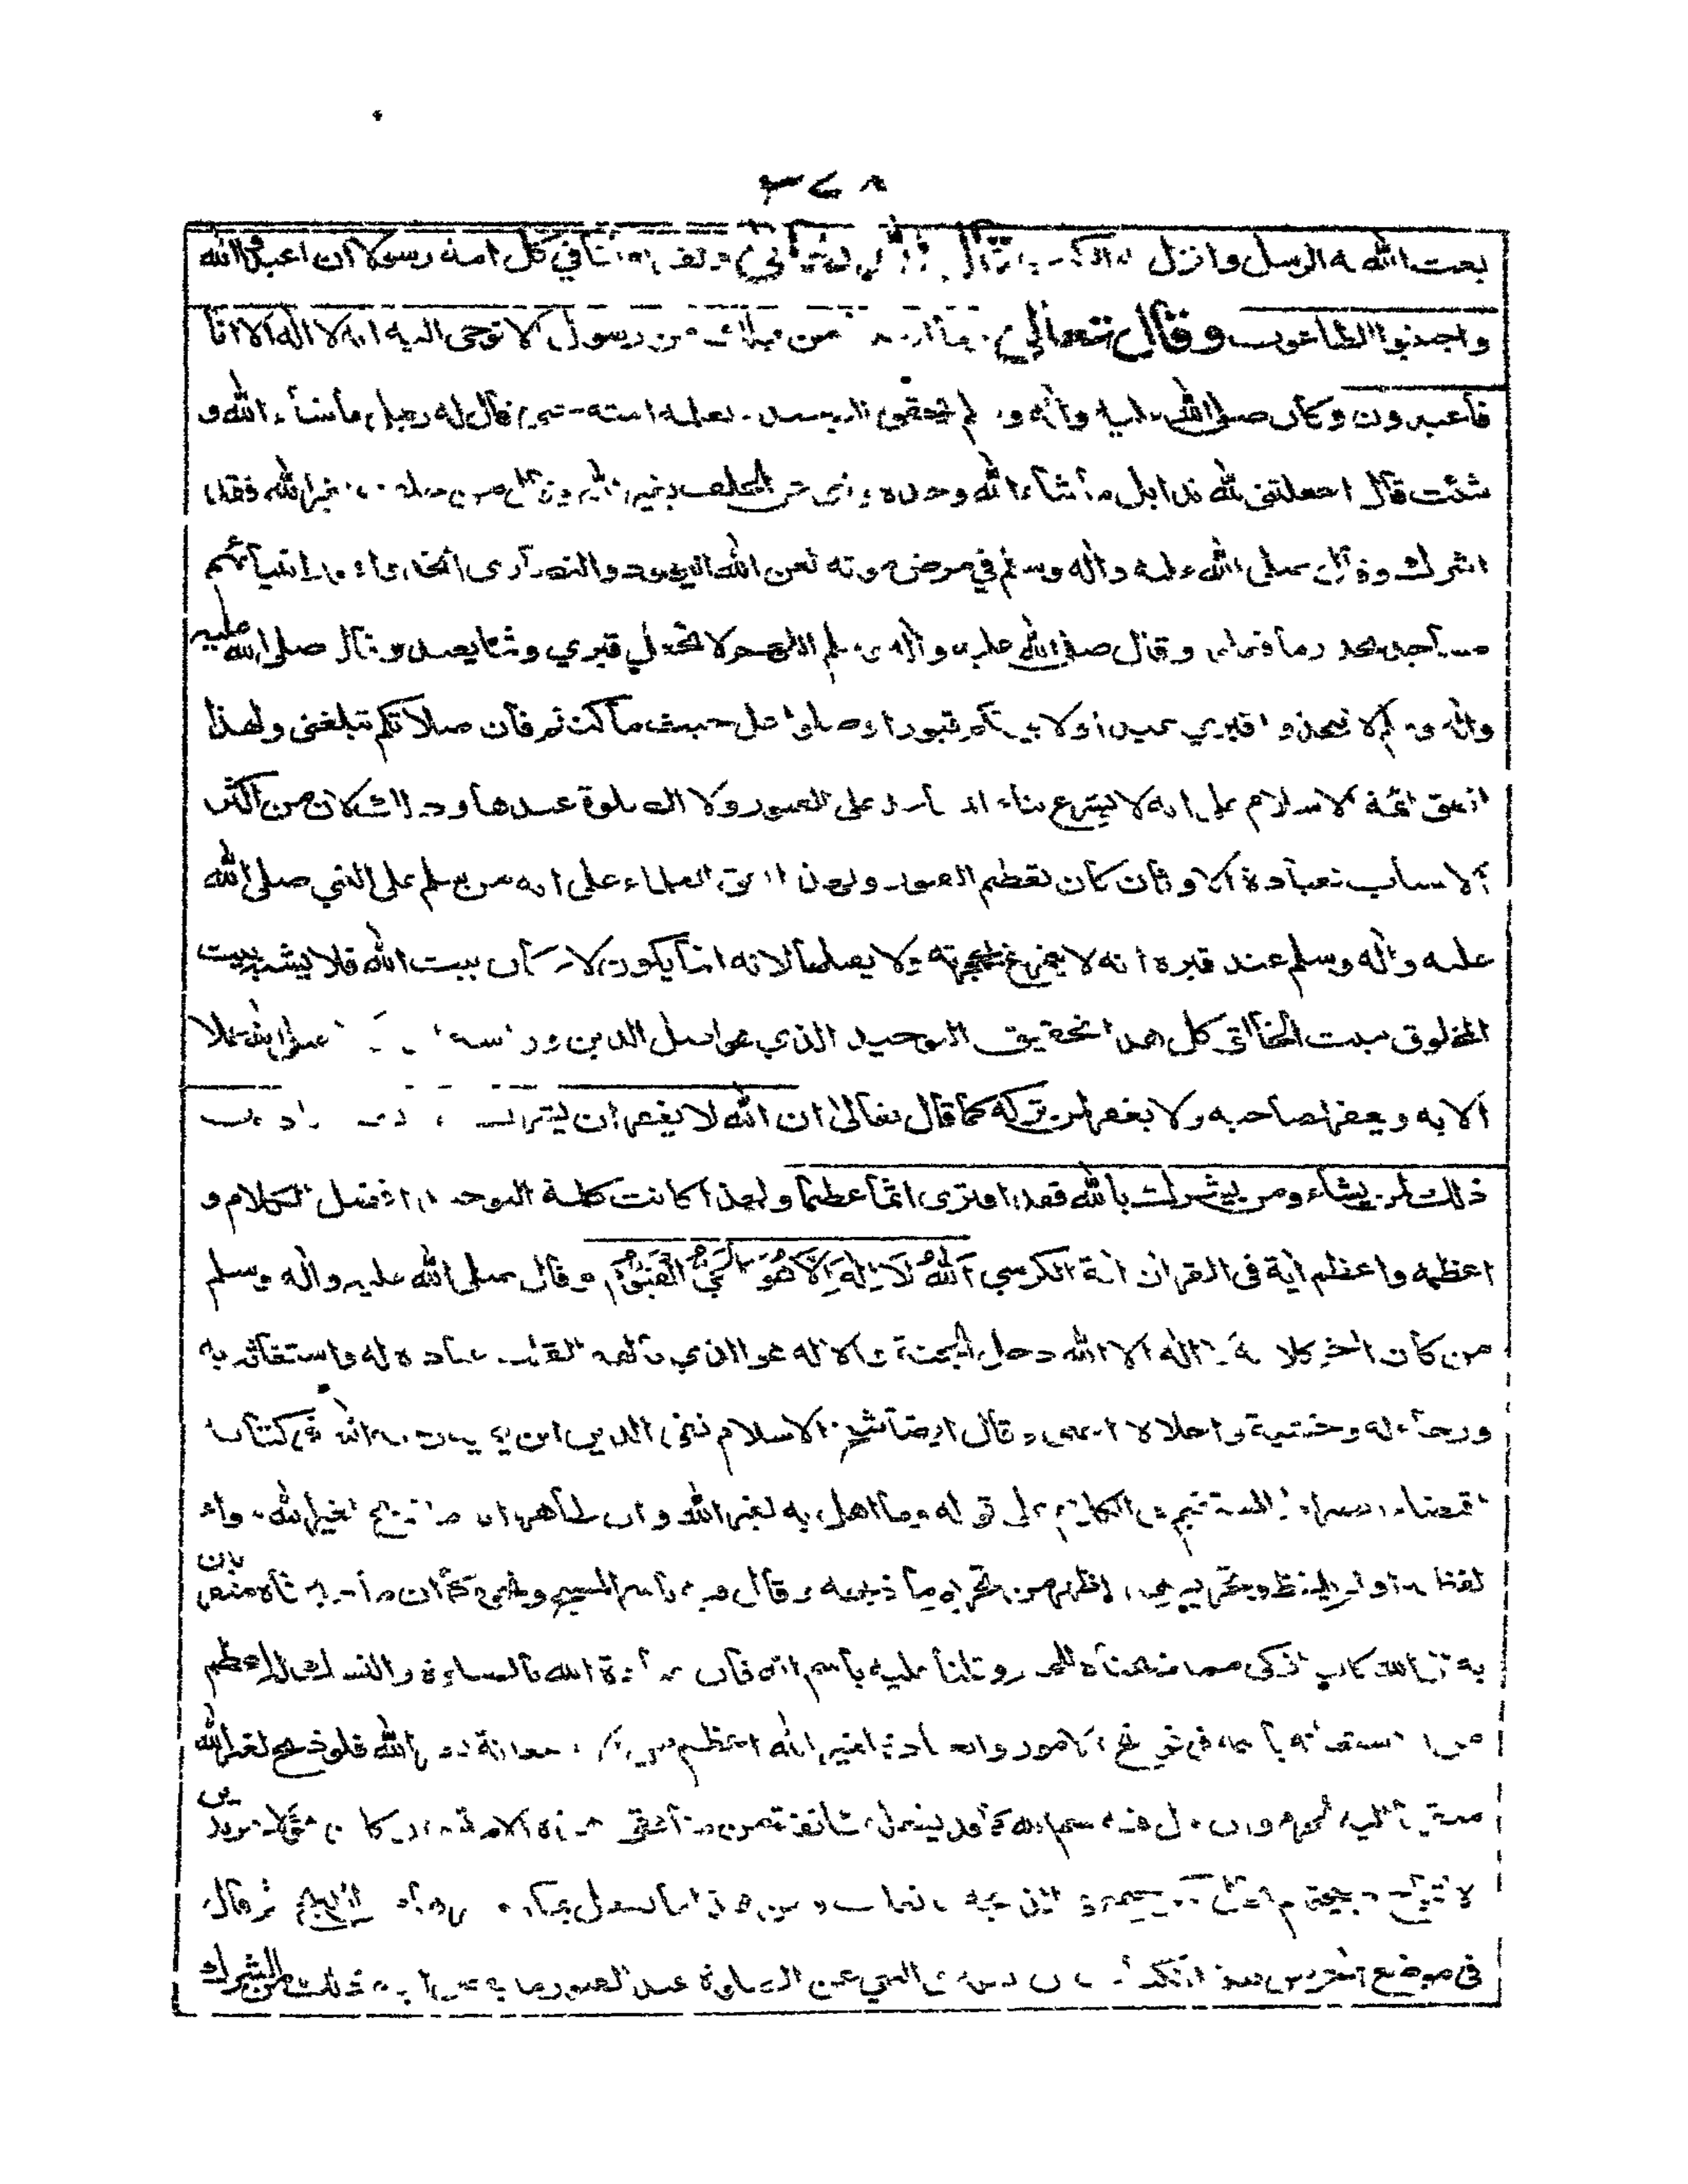 ٣٤٨
بعث الله به الرسل وانزل به الكتب قال الله تعالى ولقد بعثنا في كل امة رسولا ان اعبدوا الله
واجتنبوا الطاغوت وقال تعالى وما ارسلنا من قبلك من رسول الا نوحى اليه انه لا اله الا انا
فاعبدون وكان صلى الله عليه وآله وسلم يحقق التوحيد ويعلمه امته حتى قال له رجل ما شاء الله و
شئت قال اجعلتنى لله ندا بل ما شاء الله وحده ونهى عن الحلف بغير الله وقال من حلف بغير الله فقد
اشرك وقال صلى الله عليه وآله وسلم في مرض موته لعن الله اليهود والنصارى اتخذوا قبور انبيائهم
مساجد يحذر ما فعلوا وقال صلى الله عليه وآله وسلم اللهم لا تجعل قبري وثنا يعبد وقال صلى الله عليه
وآله وسلم لا تتخذوا قبري عيدا ولا بيوتكم قبورا وصلوا علي حيث ما كنتم فان صلاتكم تبلغنى ولهذا
اتفق ائمة الاسلام على انه لا يشرع بناء المساجد على القبور ولا الصلوة عندها وذلك لان من اكثر
الاسباب لعبادة الاوثان كان تعظيم القبور ولهذا اتفق العلماء على انه من سلم على النبي صلى الله
عليه وآله وسلم عند قبره انه لا يتمرغ بحجرته ولا يقبلها لانه انما يكون لاركان بيت الله فلا يشبه بيت
المخلوق ببيت الخالق كل هذا لتحقيق التوحيد الذي هو اصل الدين ورأسه
الا به ويغفر لصاحبه ولا يغفر لمن تركه كما قال تعالى ان الله لا يغفر ان يشرك به ويغفر ما دون
ذلك لمن يشاء ومن يشرك بالله فقد افترى اثما عظيما ولهذا كانت كلمة التوحيد افضل الكلام و
اعظمه واعظم آية فى القرآن آية الكرسي اَللهُ لَا اِلٰهَ اِلَّا هُوَ الْحَيُّ الْقَيُّوْمُ وقال صلى الله عليه وآله وسلم
من كان آخر كلامه لا اله الا الله دخل الجنة والاله هو الذي يألهه القلب عبادة له واستغاثة به
ورجاء له وخشية واجلالا انتهى وقال ايضا شيخ الاسلام تقى الدين ابن تيمية رحمه الله في كتاب
اقتضاء الصراط المستقيم في الكلام على قوله وما اهل به لغير الله وان ظاهره ان ما ذبح لغير الله
لفظ به او لم يلفظ وتحريم هذا اظهر من تحريم ما ذبحه وقال فيه باسم المسيح ونحوه كما ان ما ذبحناه متقربين
به الى الله كان ازكى مما ذبحناه للحم وقلنا عليه باسم الله فان عبادة الله بالصلوة والنسك له اعظم
من الاستعانة باسمه فى فواتح الامور والعبادة لغير الله اعظم من الاستعانة بغير الله فلو ذبح لغير الله
متقربا اليه لحرم وان قال فيه بسم الله كما قد يفعل طائفة من منافقى هذه الامة وان كان هؤلاء مرتدين
لا تباح ذبيحتهم
فى موضع آخر من هذا الكتاب النهي عن الصلوة عند القبور من الشرك